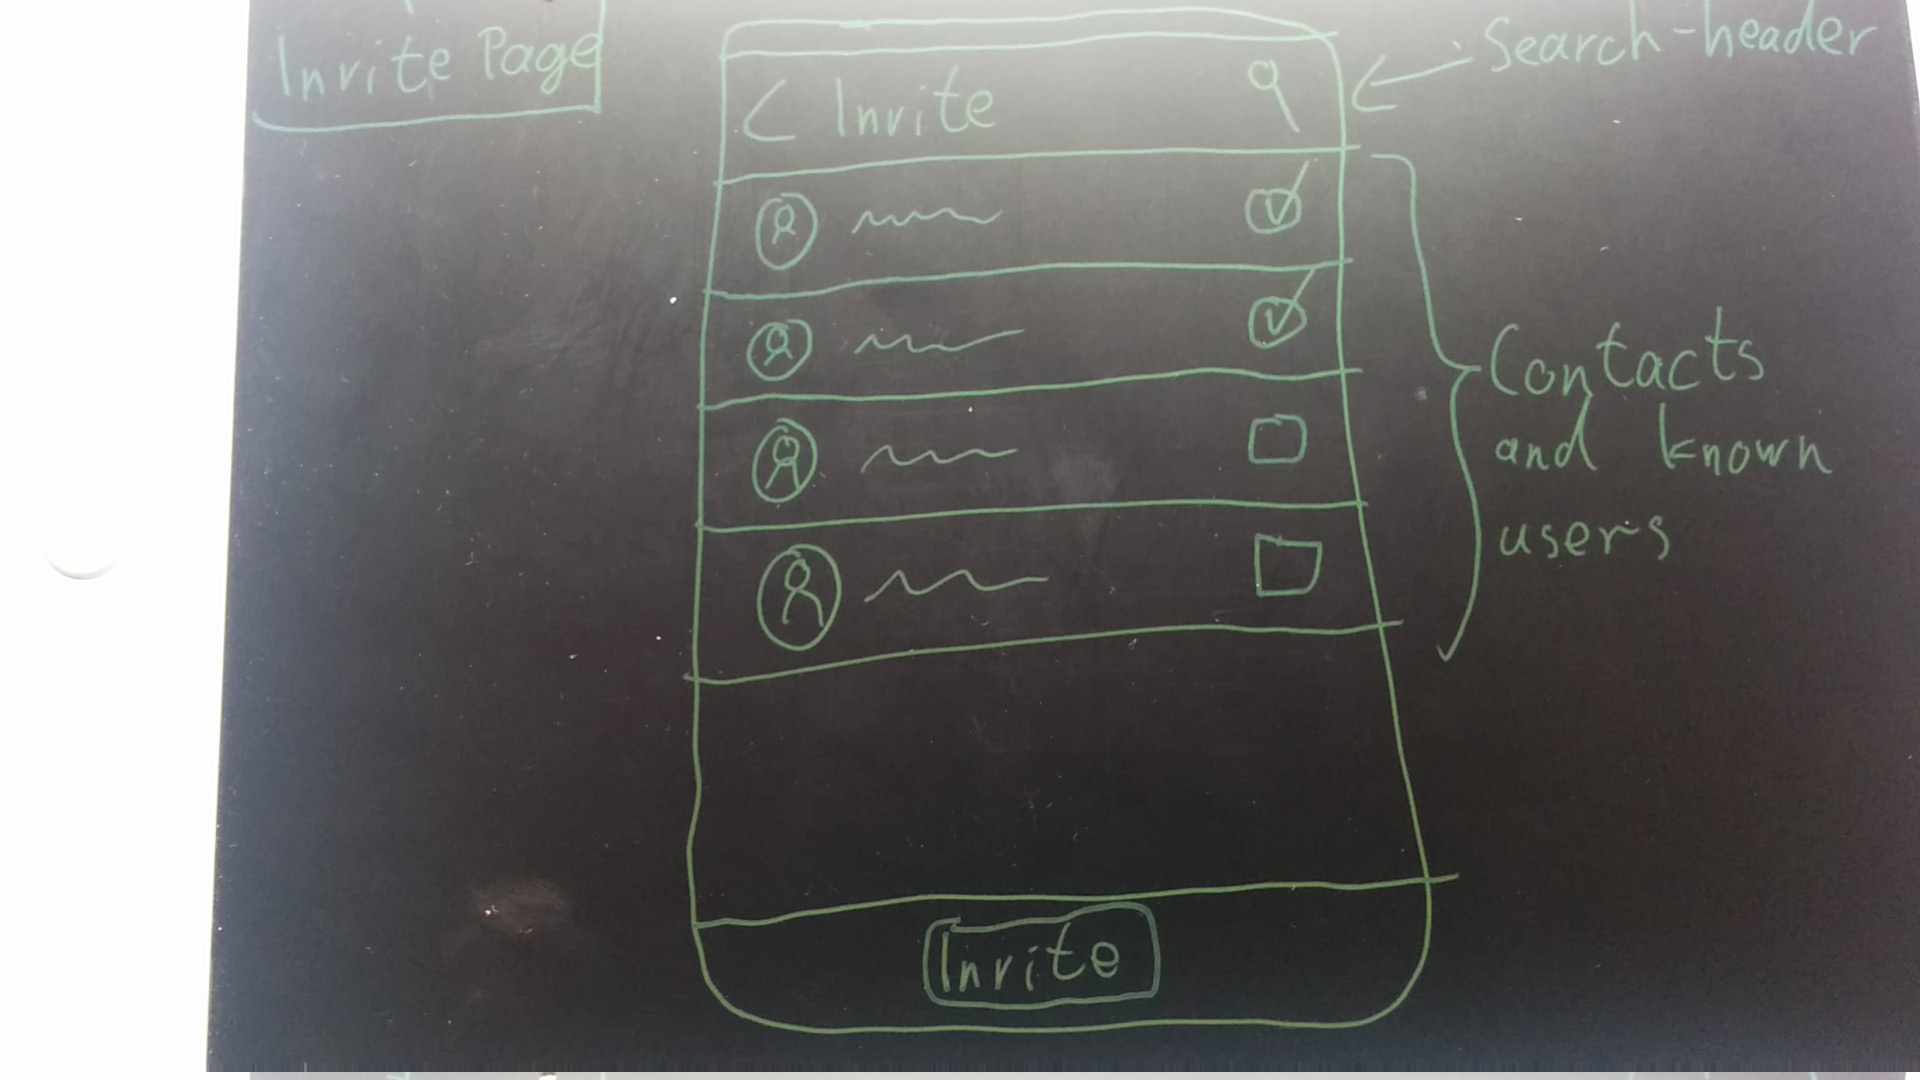 Invite Page
< Invite
Search-header
Contacts
and known
users
Invite